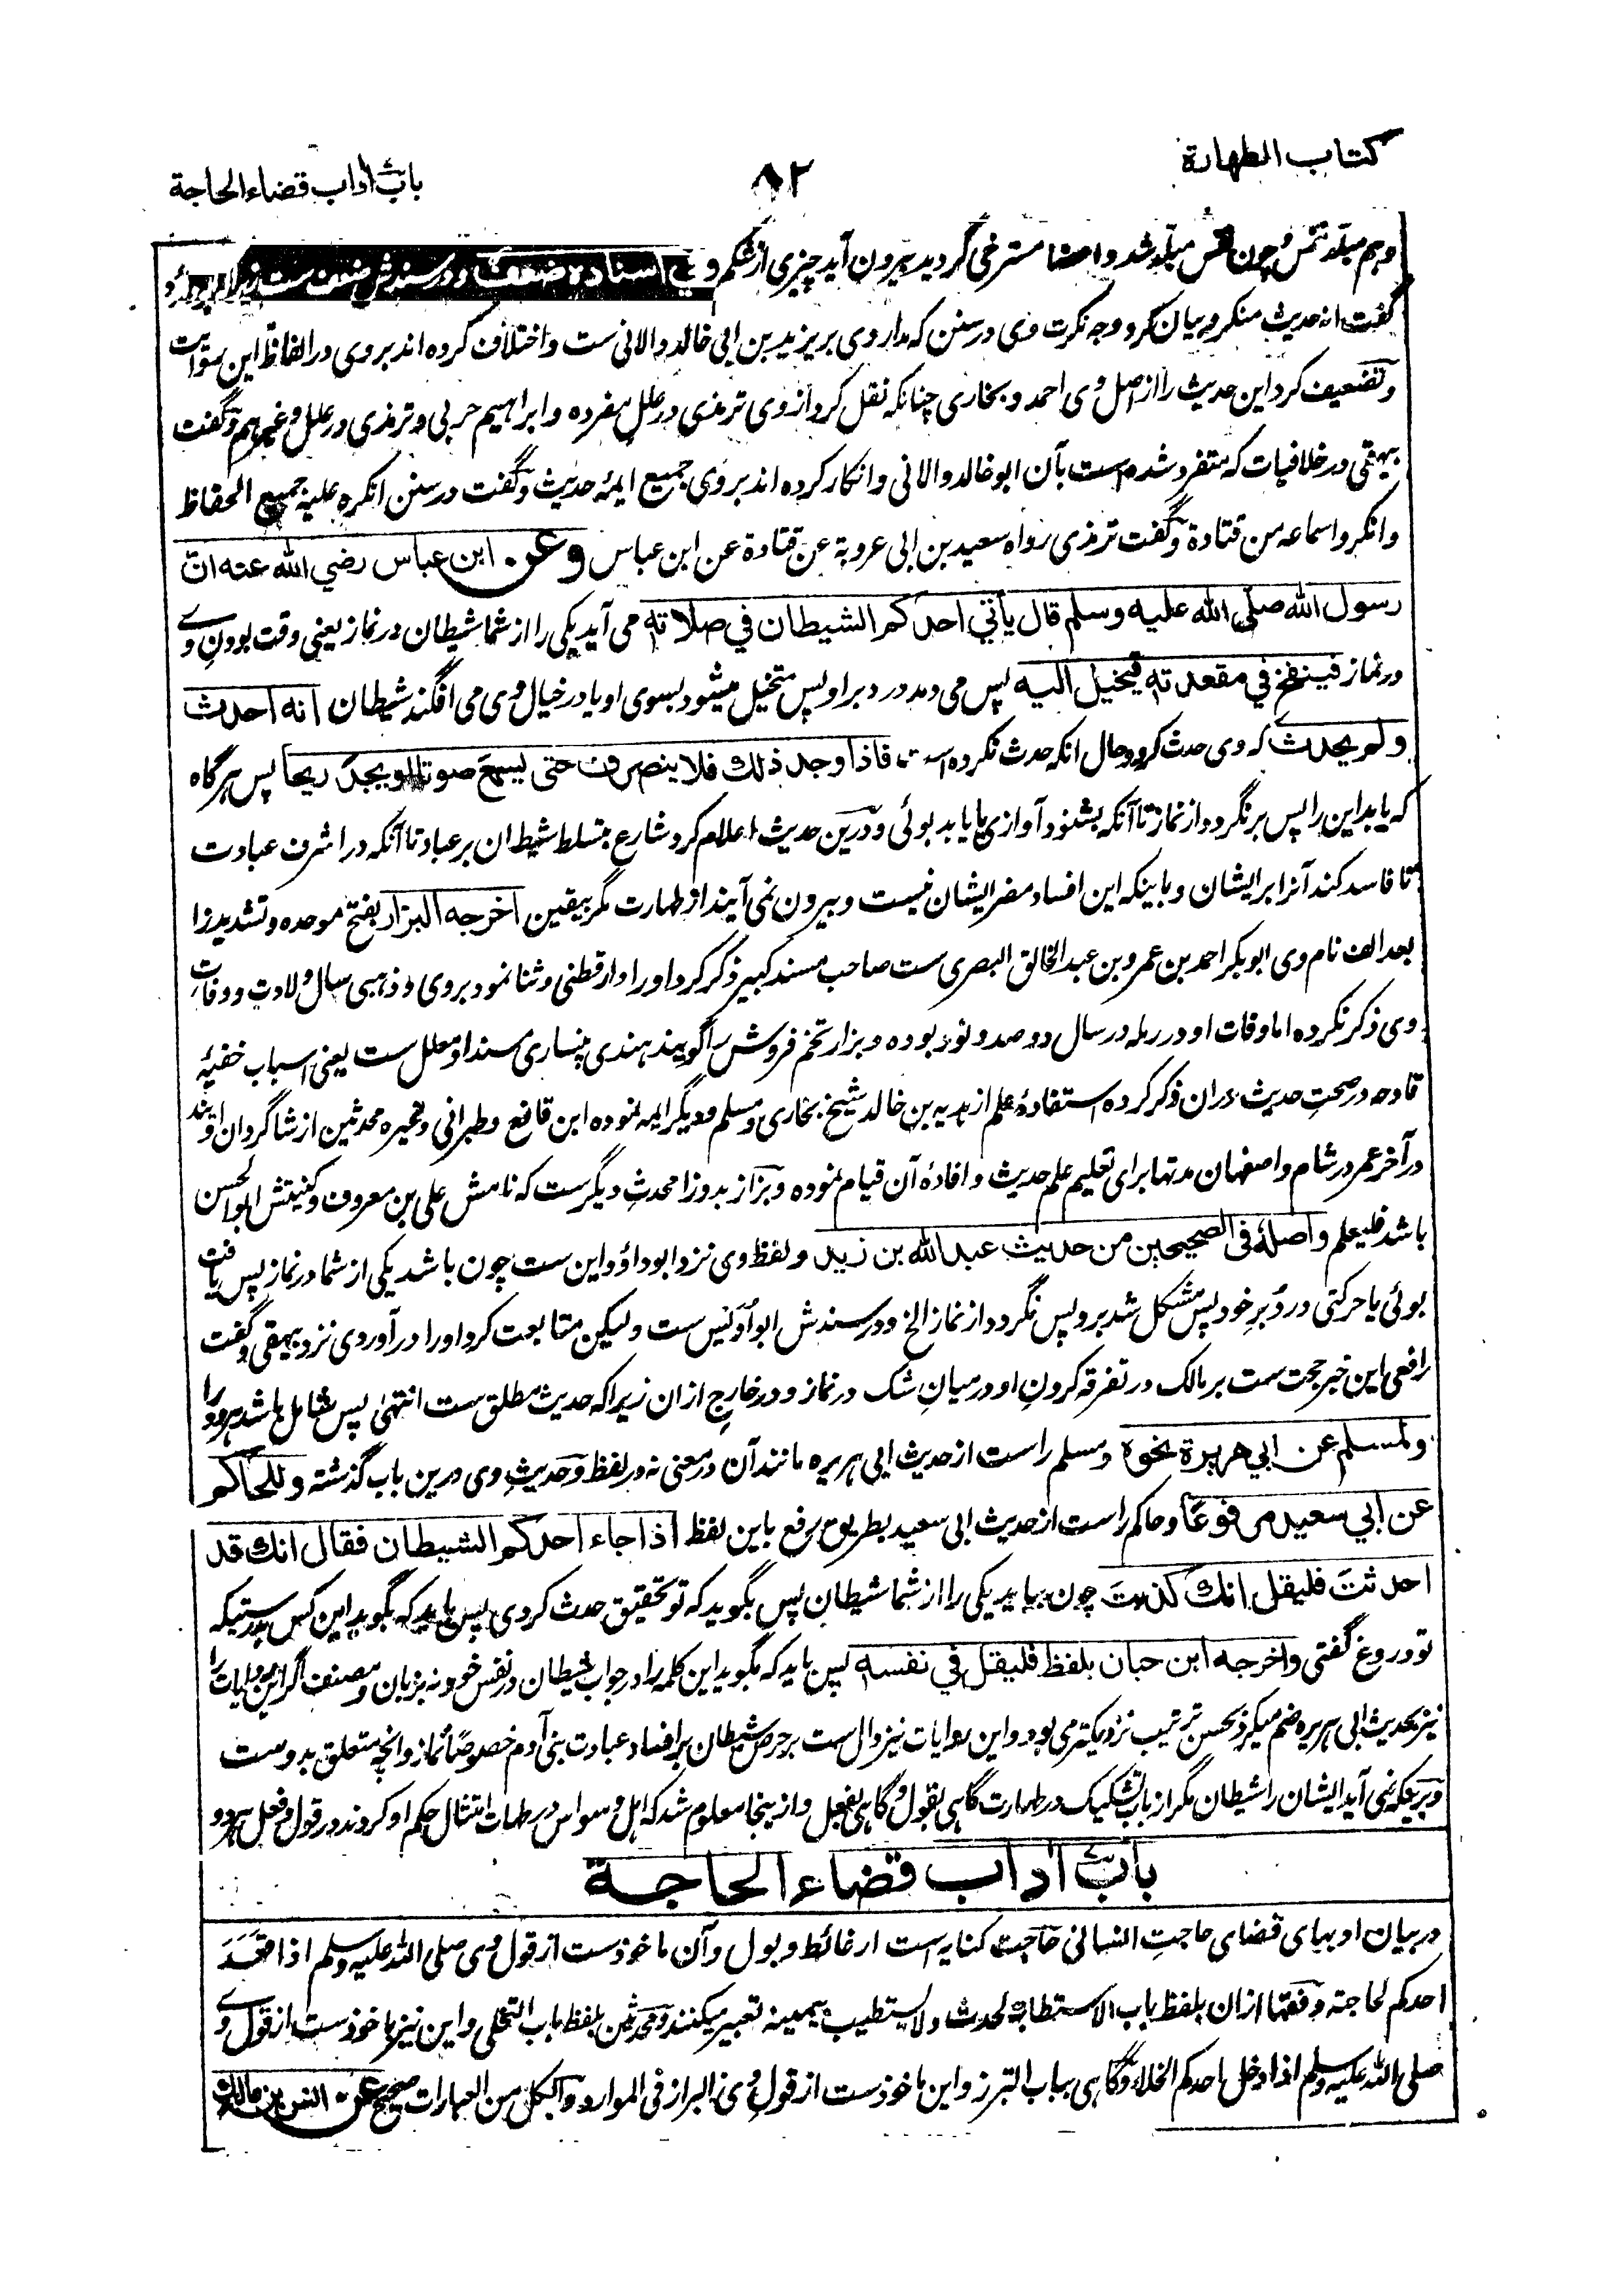 كتاب الطهارة
٨٢
باب آداب قضاء الحاجة
وہم مبتلہ شمس چون شمس مبتلہ شد و اعضا مسترخی گردید بیرون آید چیزی از شکم وفي اسناده ضعف ودر سندش ضعف ست زیراکه ابوداؤد
گفت انه حدیث منکر و بیان کرد وجه نکرت وی در سنن که مدار وی بر یزید بن ابی خالد دالانی ست و اختلاف کرده اند بروی در الفاظ این روایت
و تضعیف کرد این حدیث را از اصل وی احمد و بخاری چنانکه نقل کرد از وی ترمذی در علل مفرده و ابراهیم حربی و ترمذی در علل و غیرهم و گفت
بیهقی در خلافیات که متفرد شده است بآن ابو خالد دالانی و انکار کرده اند بروی جمیع ایمهٔ حدیث و گفت در سنن انکره علیه جمیع الحفاظ
وانکروا سماعه من قتادة و گفت ترمذی رواه سعید بن ابی عروبة عن قتادة عن ابن عباس وعن ابن عباس رضي الله عنه ان
رسول الله صلى الله عليه وسلم قال يأتي احدكم الشيطان في صلاته می آید یکی را از شما شیطان در نماز یعنی وقت بودن وے
در نماز فينفخ في مقعدته فيخيل اليه پس می دمد در دبر او پس متخیل میشود بسوی او یا در خیال وی می افگند شیطان انه احدث
ولم يحدث که وی حدث کرد و حال انکه حدث نکرده است فاذا وجد ذلك فلا ينصرف حتى يسمع صوتا او يجد ريحا پس هرگاه
که یابد این را پس برنگردد از نماز تا آنکه بشنود آوازی یا یابد بوئی و درین حدیث اعلام کرد شارع بتسلط شیطان بر عباد تا آنکه در اشرف عبادت
تا فاسد کند آنرا بر ایشان و باینکه این افساد مضر ایشان نیست و بیرون نمی آیند از طهارت مگر بیقین اخرجه البزار بفتح موحده و تشدید زا
بعد الف نام وی ابوبکر احمد بن عمرو بن عبد الخالق البصری ست صاحب مسند کبیر ذکر کرد او را دارقطنی و ثنا نمود بروی و ذهبی سال ولادت و وفات
وی ذکر نکرده اما وفات او در رمله در سال دو صد و نود بوده و بزار تخم فروش را گویند هندی پنساری مسند او معلل ست یعنی اسباب خفیهٔ
قادحه در صحت حدیث دران ذکر کرده استفادهٔ علم از هدبه بن خالد شیخ بخاری و مسلم و دیگر ایمه نموده ابن قانع و طبرانی و غیره محدثین از شاگردان اویند
در آخر عمر در شام و اصفهان مدتها برای تعلیم علم حدیث و افادهٔ آن قیام نموده و بزاز بدو زا محدث دیگر ست که نامش علی بن معروف و کنیتش ابو الحسن
باشد فلیعلم واصله في الصحيحين من حديث عبد الله بن زيد و لفظ وی نزد ابوداؤد این ست چون باشد یکی از شما در نماز پس یافت
بوئی یا حرکتی در دبر خود پس مشکل شد برو پس نگردد از نماز الخ و در سندش ابو اویس ست ولیکن متابعت کرد او را در آوردی نزد بیهقی و گفت
رافعی این خبر حجت ست بر مالک در تفرقه کردن او درمیان شک در نماز و در خارج ازان زیراکه حدیث مطلق ست انتهی پس شامل باشد هر دو را
ولمسلم عن ابي هريرة نحوه و مسلم راست از حدیث ابی هریره مانند آن در معنی نه در لفظ و حدیث وی درین باب گذشته وللحاكم
عن ابي سعيد مرفوعا و حاکم راست از حدیث ابی سعید بطریق رفع باین لفظ اذا جاء احدكم الشيطان فقال انك قد
احدثت فليقل انك كذبت چون بیاید یکی را از شما شیطان پس بگوید که تو تحقیق حدث کردی پس باید که بگوید این کس بدرستیکه
تو دروغ گفتی واخرجه ابن حبان بلفظ فليقل في نفسه پس باید که بگوید این کلمه را در جواب شیطان در نفس خود نه بزبان و مصنف اگر این روایات را
نیز بحدیث ابی هریره ضم میکرد بحسن ترتیب نزدیکتر می بود و این روایات نیز دال ست بر حرص شیطان بر افساد عبادت بنی آدم خصوصا نماز و انچه متعلق بدوست
و نمی آید ایشان را شیطان مگر از باب تشکیک در طهارت گاهی بقول و گاهی بفعل و از ینجا معلوم شد که اهل وسواس در طهارت امتثال حکم او کردند در قول و فعل هر دو
باب آداب قضاء الحاجة
در بیان ادبهای قضای حاجت انسانی حاجت کنایه است از غائط و بول و آن ماخوذ ست از قول وی صلی الله علیه وسلم اذا قعد
احدکم لحاجته و فقها ازان بلفظ باب الاستطابة لحدث ولا یستطیب بیمینه تعبیر میکنند و محدثین بلفظ باب التخلی و این نیز ماخوذ ست از قول وے
صلی الله علیه وسلم اذا دخل احدکم الخلاء و گاهی بباب التبرز و این ماخوذ ست از قول وی البراز فی الموارد والکل من العبارات صحیح عن انس بن مالك